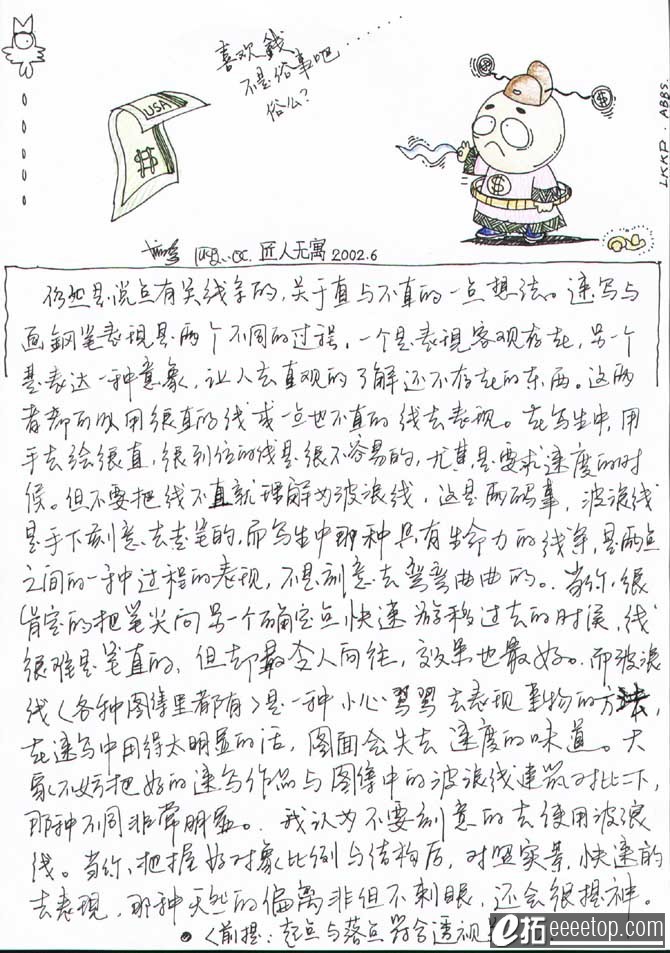 喜欢錢
不是俗事吧......
俗么?
USA
$
$
$
$
LKKP. ABBS.
匠人无寓 2002.6
仍然是说点有关线条的,关于直与不直的一点想法。速写与
画鋼笔表現是两个不同的过程。一个是表現客观存在,另一个
是表达一种意象,让人去直观的了解还不存在的东西。这两
者都可以用很直的线或一点也不直的线去表现。在写生中,用
手去绘很直,很到位的线是很不容易的,尤其是要求速度的时
候。但不要把线不直就理解为波浪线,这是两码事,波浪线
是手下刻意去走笔的,而写生中那种具有生命力的线条,是两点
之间的一种过程的表现,不是刻意去弯弯曲曲的。当你很
肯定的把笔尖向另一个确定点快速游移过去的时候,线
很难是笔直的,但却最令人向往,效果也最好。而波浪
线<各种图集里都有>是一种小心翼翼去表现事物的方法,
在速写中用得太明显的话,图面会失去速度的味道。大
家不妨把好的速写作品与图集中的波浪线建筑对比一下,
那种不同非常明显。我认为不要刻意的去使用波浪
线。当你把握好对象比例与结构后,对照实景,快速的
去表現,那种天然的偏离非但不刺眼,还会很提神。
<前提:起点与落点符合透视
e拓 eeeetop.com